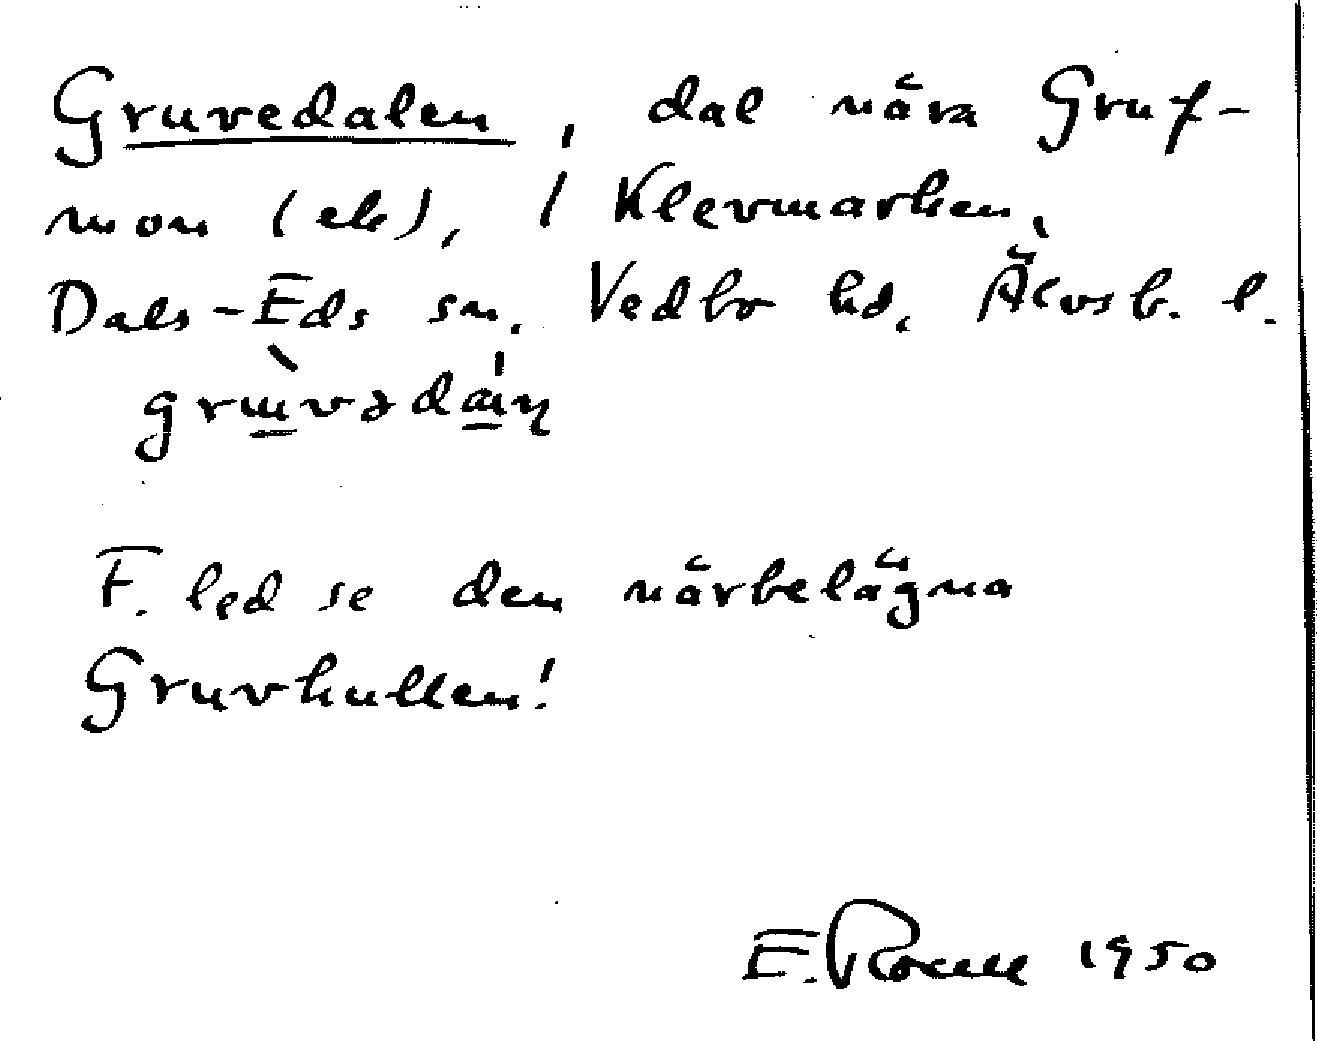 Gruvedalen, dal nära Gruf-
mon (ek), i Klevmarken,
Dals-Eds sn. Vedbo hd, Älvsb. l.
F. led se den närbelägna
Gruvkullen!
E. 1950